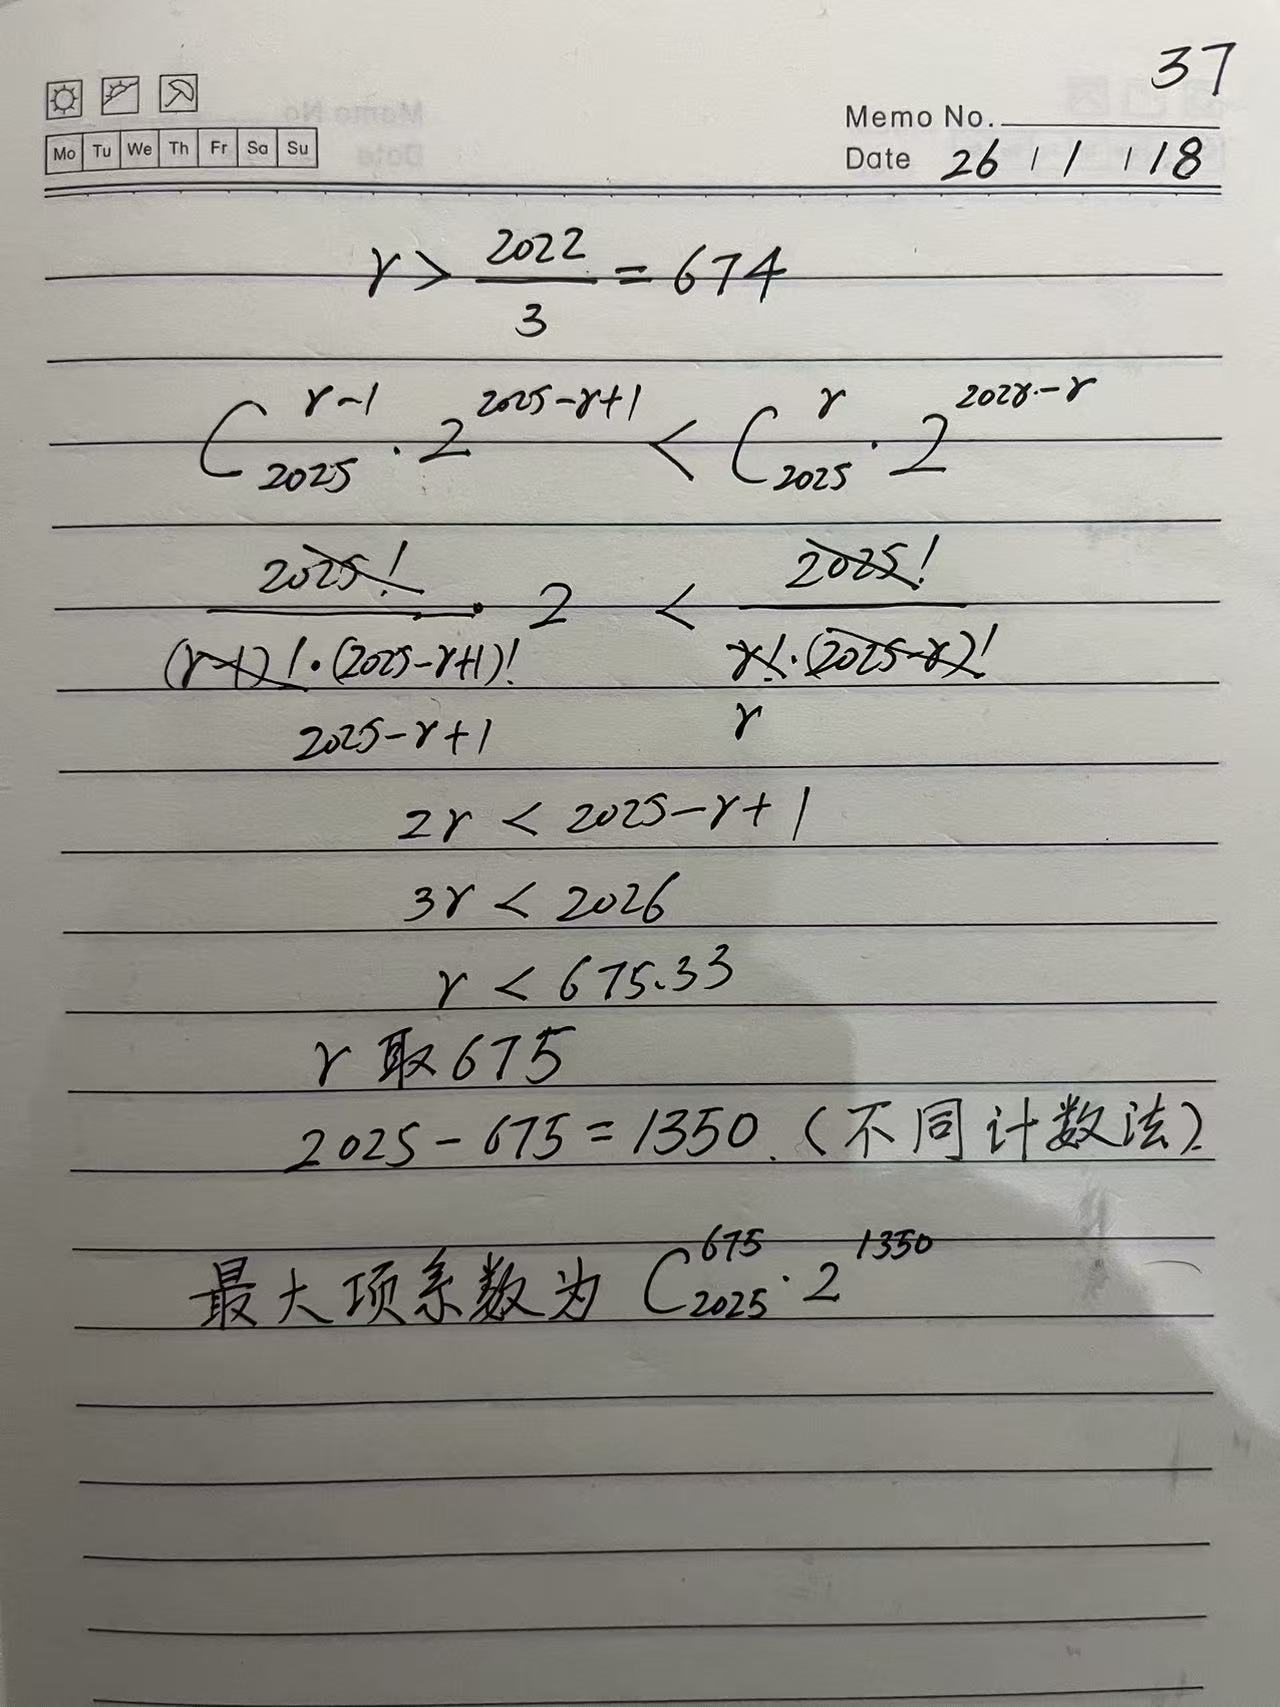 37
Memo No.
Mo Tu We Th Fr Sa Su
Date 26 / 1 / 18
r > 2022/3 = 674
C_{2025}^{r-1} · 2^{2025-r+1} < C_{2025}^{r} · 2^{2025-r}
2025!/((r-1)!·(2025-r+1)!) · 2 < 2025!/(r!·(2025-r)!)
2025-r+1 r
2r < 2025-r+1
3r < 2026
r < 675.33
r 取 675
2025 - 675 = 1350.(不同计数法)
最大项系数为 C_{2025}^{675} · 2^{1350}